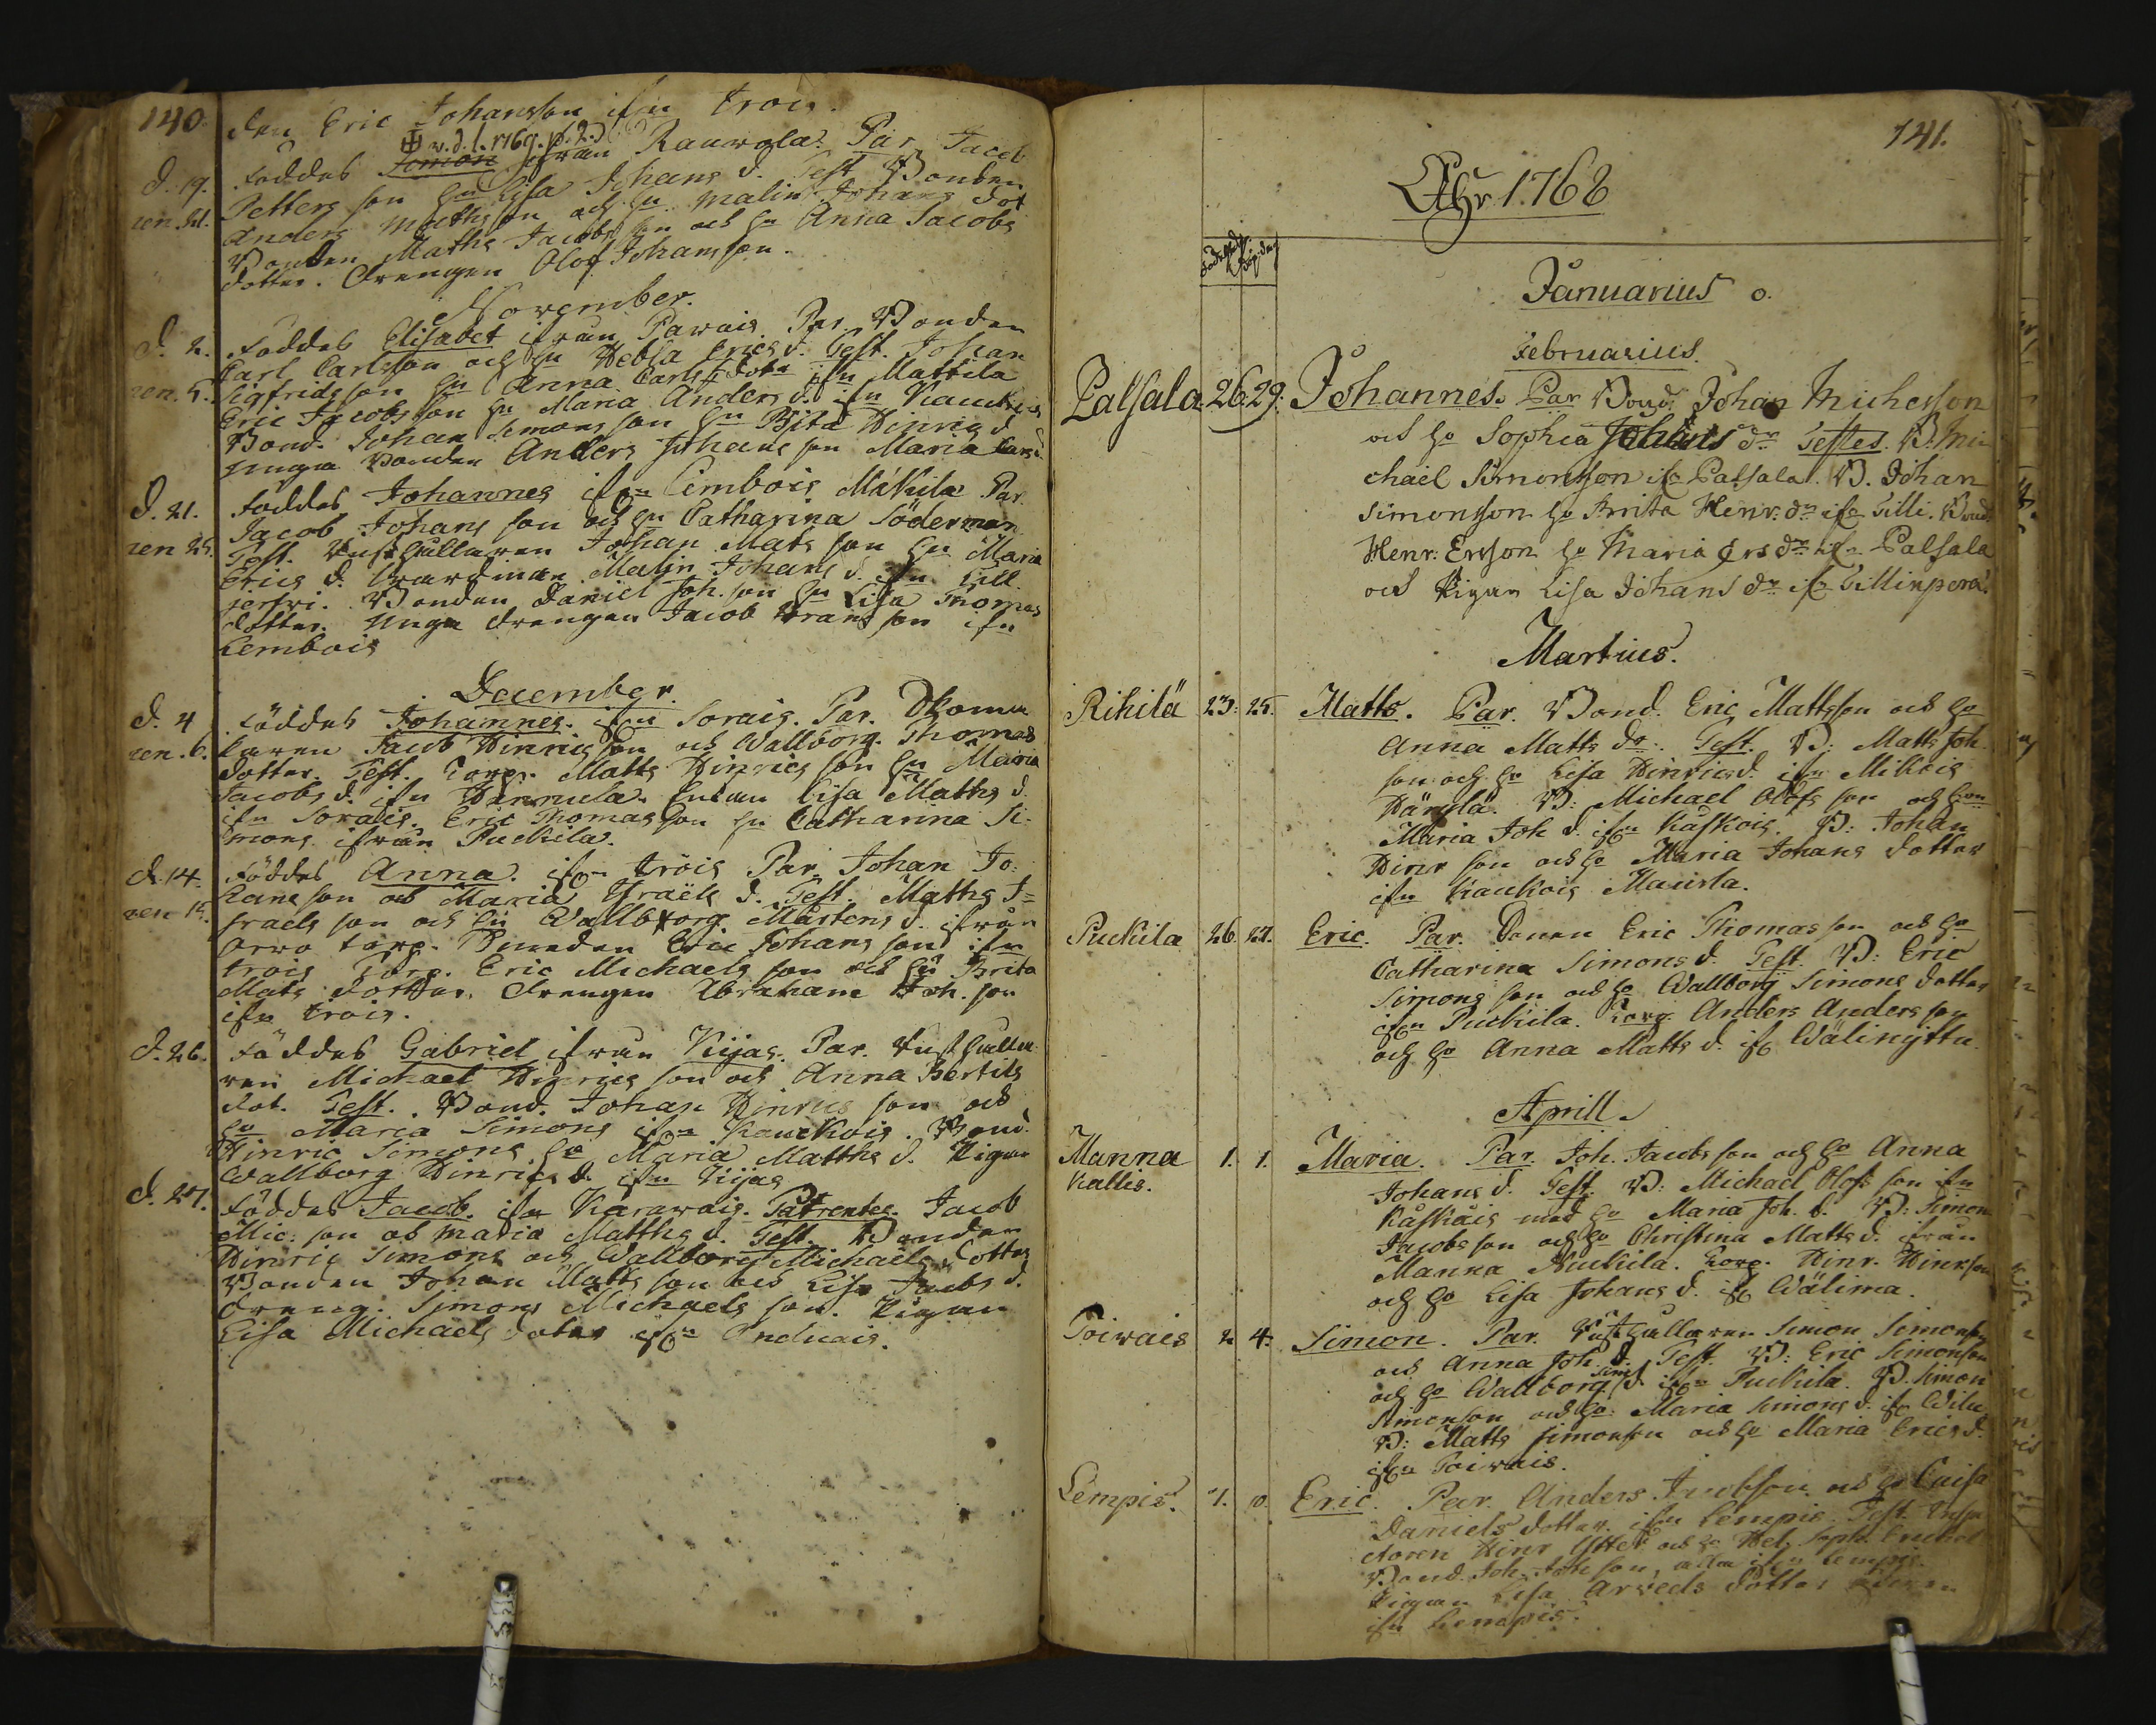 140.
den Eric Johansson ifrn Trois.
ⴲ v. d. 1. 1769. p. 2.
d. 19. Föddes Simon ifrån Rauvola. Par. Jacob
ren. 21. Petters son hu Lisa Johans d. Test Bonden
Anders Mathsson och hu Malin Johans dot
Bonden Maths Jacobsson och hu Anna Jacobs
dotter. Drengen Olof Johansson.
November.
d. 2. Föddes Elisabet ifrån Parvais. Par. Bonden
Carl Carlsson och hu Hebla Erics d. Test. Johan
ren. 5. Sigfridsson hu Anna Carls dotr ifrn Mattila
Eric Jacobsson hu Maria Anders d. ifrn
Bond. Johan Simonsson hu Brita Hinrics d.
unga Bonden Anders Johans son Maria Lars d.
d. 21. Föddes Johannes ifrn Lembois Mikila Par.
Jacob Johans son och hu Catharina Söderman
ren 25. Test. Rusthållaren Johan Mats son hu Maria
Erics d. Malin Johans d. ifrn Lill
Bonden Daniel Joh. son hu Lisa Thomas
dotter. Unga drengen Jacob son ifrn
Lembois
December.
d. 4 Föddes Johannes. ifrn Sorais. Par.
ren. 6. karen Jacob Hinricsson och Wallborg Thomas
dotter. Test. Torp. Matts Hinrics son hu Maria
Jacobs d. ifrn Hannula. Enkan Lisa Maths d.
ifrn Sorais. Eric Thomasson hu Catharina Si-
mons ifrån Puckila.
d. 14. Föddes Anna. ifrn Trois Par. Johan Jo-
hans son och Maria Israels d. Test. Maths I=
ren 15. sraels son och hu Wallborg Mårtens d. ifrån
Orvo torp. Smeden Eric Johans son ifrn
Trois Torp. Eric Michaels son och hu Brita
Mats dotter. Drengen Abraham Joh. son
ifrn Trois.
d. 26. Föddes Gabriel ifrån Kijas. Par. Rusthålla
ren Michael Hinrics son och Anna Bertils
dot. Test. Bond. Johan Hinrics son och
hu Maria Simons ifrn Kauckois. Bond.
Hinric Simons hu Maria Matths d. Pigan
Wallborg Hinrics d. ifrn Kijas
d. 27. Föddes Jacob. ifrn Karavais. Parentes. Jacob
Mic: son och Maria Matths d. Test. Bonden
Hinric Simons och Wallborg Michaels dotter
Bonden Johan Matts son och Lisa Jacobs d.
Dreng. Simon Michaels son. Pigan
Lisa Michaels doter ifrn Anduais.
141.
Åhr 1768
Födelsedag Döp.dag
Januarius o.
Februarius.
Palsala. 26. 29. Johannes. Par Bond. Johan Michesson
och ho Sophia Johans dr Testes. B. Mi-
chael Simonsson ifr Palsala. B. Johan
Simonsson ho Brita Henr: dr ifr Tilli. Bond
Henr: Ersson ho Maria Ers dr ifr Palsala
och Pigan Lisa Johans dr ifr Tillinperä.
Martius.
Rihilä 23: 25. Matts. Par. Bond. Eric Mattsson och ho
Anna Matts dr. Test. B: Matts Joh.
son och ho Lisa Hinrics d. ifrn Mikois
Härylä. B: Michael Olofs son och hon
Maria Joh. d. ifrn Kaskois. B: Johan
Hinr son och ho Maria Johans dotter
ifrn Kaukois Maurla.
Puckila 26. 27. Eric. Par. Eric Thomas son och ho
Catharina Simons d. Test. B: Eric
Simons son och ho Wallborg Simons dotter
ifrn Puckila. Torp. Anders Anders son
och ho Anna Matts d. ifr Wälinijttu.
Aprill.
Manna 1. 1. Maria. Par. Joh. Jacobs son och ho Anna
Kallis. Johans d. Test. B: Michael Olofs son ifrn
Kaskois med ho Maria Joh. d. B: Simon
Jacobs son och ho Christina Matts d. ifrån
Manna Nuckila. Torp. Hinr. Hinrson
och ho Lisa Johans d. ifr Wälima.
Poivais 2 4. Simon. Par. Rusthållaren Simon Simonson
och Anna Joh. d. Test. B: Eric Simonson
och ho Wallborg Sims d. ifrn Puckila. B. Simon
Simonson och ho Maria Simons d. ifr Wilu
B: Matts Simonson och ho Maria Erics d.
ifrn Poivais.
Lempis. 7. 10. Eric. Par. Anders Jacobson och ho Caisa
Daniels dotter. ifrn Lempis. Test. Inspe
ctoren Hinr och ho Hel. Soph.
Bond. Joh. Joh son, alla ifrn Lempis.
Pigan Lisa Arveds dotter
ifrn Lempis.